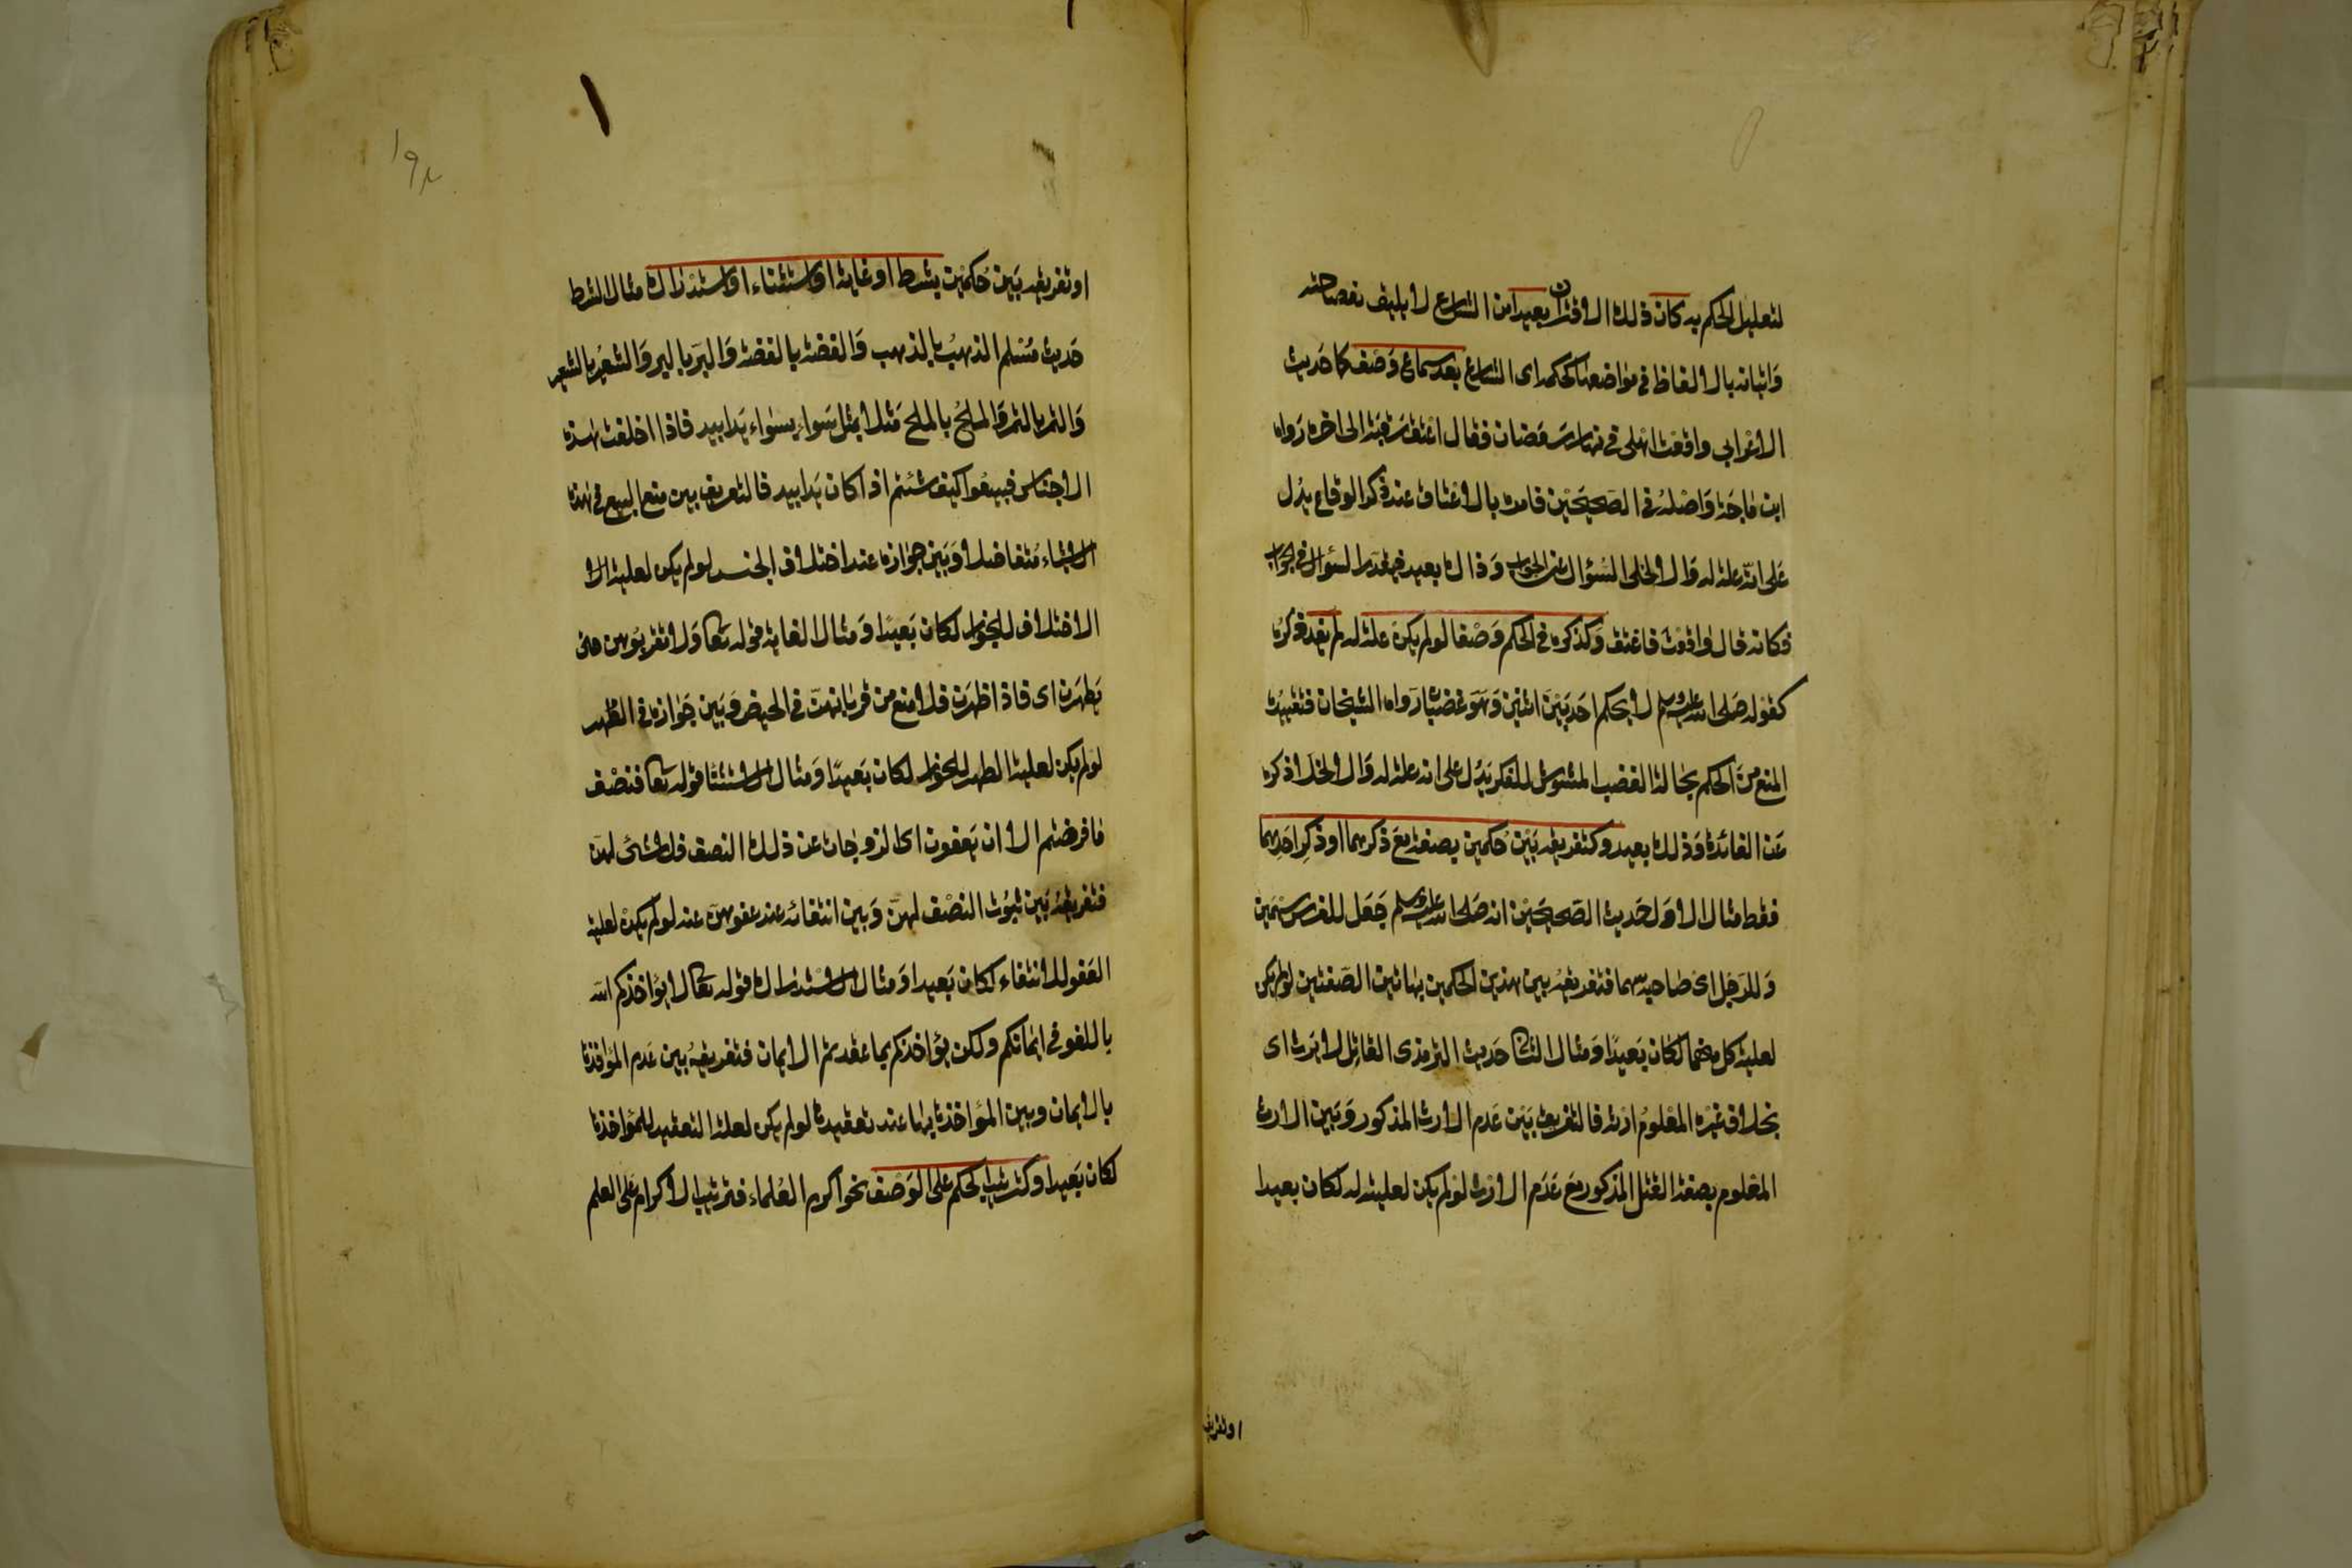 لتعليل الحكم به كان ذلك الاقتران بعيدا من الشارع لا يليق بفصاحته
واتيانه بالالفاظ في مواضعها كحكمه اى الشارع بعد سماع وصف كما حديث
الاعرابي واقعت اهلى في نهار رمضان فقال اعتق رقبة الى اخره رواه
ابن ماجة واصله في الصحيحين فامره بالاعتاق عند ذكر الوقاع يدل
على انه علة له والا لخلى السؤال عن الجواب وذلك بعيد فيقدر السؤال في الجواب
فكانه قال واقعت فاعتق وكذكره في الحكم وصفا لو لم يكن علة له لم يفد ذكره
كقوله صلى الله عليه وسلم لا يحكم احد بين اثنين وهو غضبان رواه الشيخان فتقييده
المنع من الحكم بحالة الغضب المشوش للفكر يدل على انه علة له والا لخلا ذكره
عن الفائدة وذلك بعيد وكتفريقه بين حكمين بصفة مع ذكرهما او ذكر احدهما
فقط مثال الاول حديث الصحيحين انه صلى الله عليه وسلم جعل للفرس سهمين
وللرجل اى صاحبه سهما فتفريقه بين هذين الحكمين بهاتين الصفتين لو لم يكن
لعلية كل منهما لكان بعيدا ومثال الثانى حديث الترمذى القاتل لا يرث اى
بخلاف غيره المعلوم ارثه فالتفريق بين عدم الارث المذكور وبين الارث
المعلوم بصفة القتل المذكور مع عدم الارث لو لم يكن لعليته له لكان بعيدا
اوتفريقه
او تفريقه بين حكمين بشرط او غاية او استثناء او استدراك مثال الشرط
حديث مسلم الذهب بالذهب والفضة بالفضة والبر بالبر والشعير بالشعير
والتمر بالتمر والملح بالملح مثلا بمثل سواء بسواء يدا بيد فاذا اختلفت هذه
الاجناس فبيعوا كيف شئتم اذا كان يدا بيد فالتفريق بين منع البيع في هذه
الاشياء متفاضلا وبين جوازه عند اختلاف الجنس لو لم يكن لعلية الا
الاختلاف للجواز لكان بعيدا ومثال الغاية قوله تعالى ولا تقربوهن حتى
يطهرن اى فاذا طهرن فلا منع من قربانهن في الحيض وبين جوازه في الطهر
لو لم يكن لعلية الطهر للجواز لكان بعيدا ومثال الاستثنا قوله تعالى فنصف
ما فرضتم الا ان يعفون اى الزوجات عن ذلك النصف فلا شئ لهن
فتفريقه بين ثبوت النصف لهن وبين انتفائه عند عفوهن عنه لو لم يكن لعلية
العفو للانتفاء لكان بعيدا ومثال الاستدراك قوله تعالى لا يؤاخذكم الله
باللغو في ايمانكم ولكن يؤاخذكم بما عقدتم الايمان فتفريقه بين عدم المؤاخذة
بالايمان وبين المؤاخذة بها عند تعقيدها لو لم يكن لعلة التعقيد للمؤاخذة
لكان بعيدا وكترتيب الحكم على الوصف نحو اكرم العلماء فترتيب الاكرام على العلم